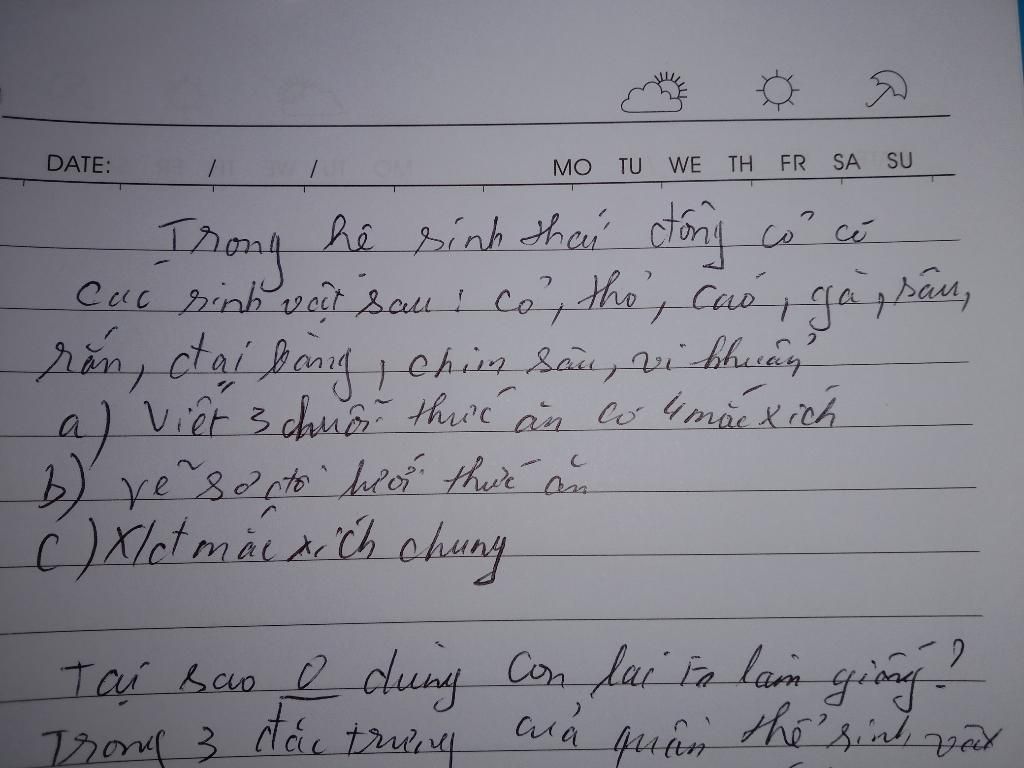 DATE: / / MO TU WE TH FR SA SU
Trong hệ sinh thái đồng cỏ có
các sinh vật sau: cỏ, thỏ, cáo, gà, sâu,
rắn, đại bàng, chim sâu, vi khuẩn
a) Viết 3 chuỗi thức ăn có 4 mắc xích
b) vẽ sơ đồ lưới thức ăn
c) X/đ mắc xích chung
Tại sao 0 dùng con lai F1 làm giống?
Trong 3 đặc trưng của quần thể sinh vật